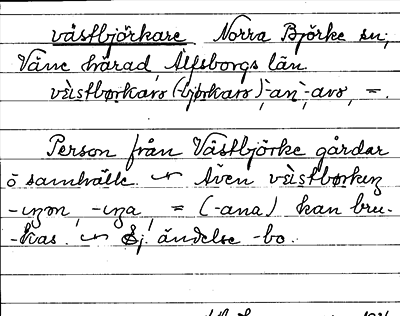 västbjörkare Norra Björke sn,
Väne härad, Älfsborgs län.
vèstbørkarə (-bjørkarə), -an, -arə, =.
Person från Västbjörke gårdar
o samhälle. ~ Även vèstbørkıŋ
-ıŋən, -ıŋa, = (-ana) kan bru-
-kas. ~ Ej ändelse -bo.